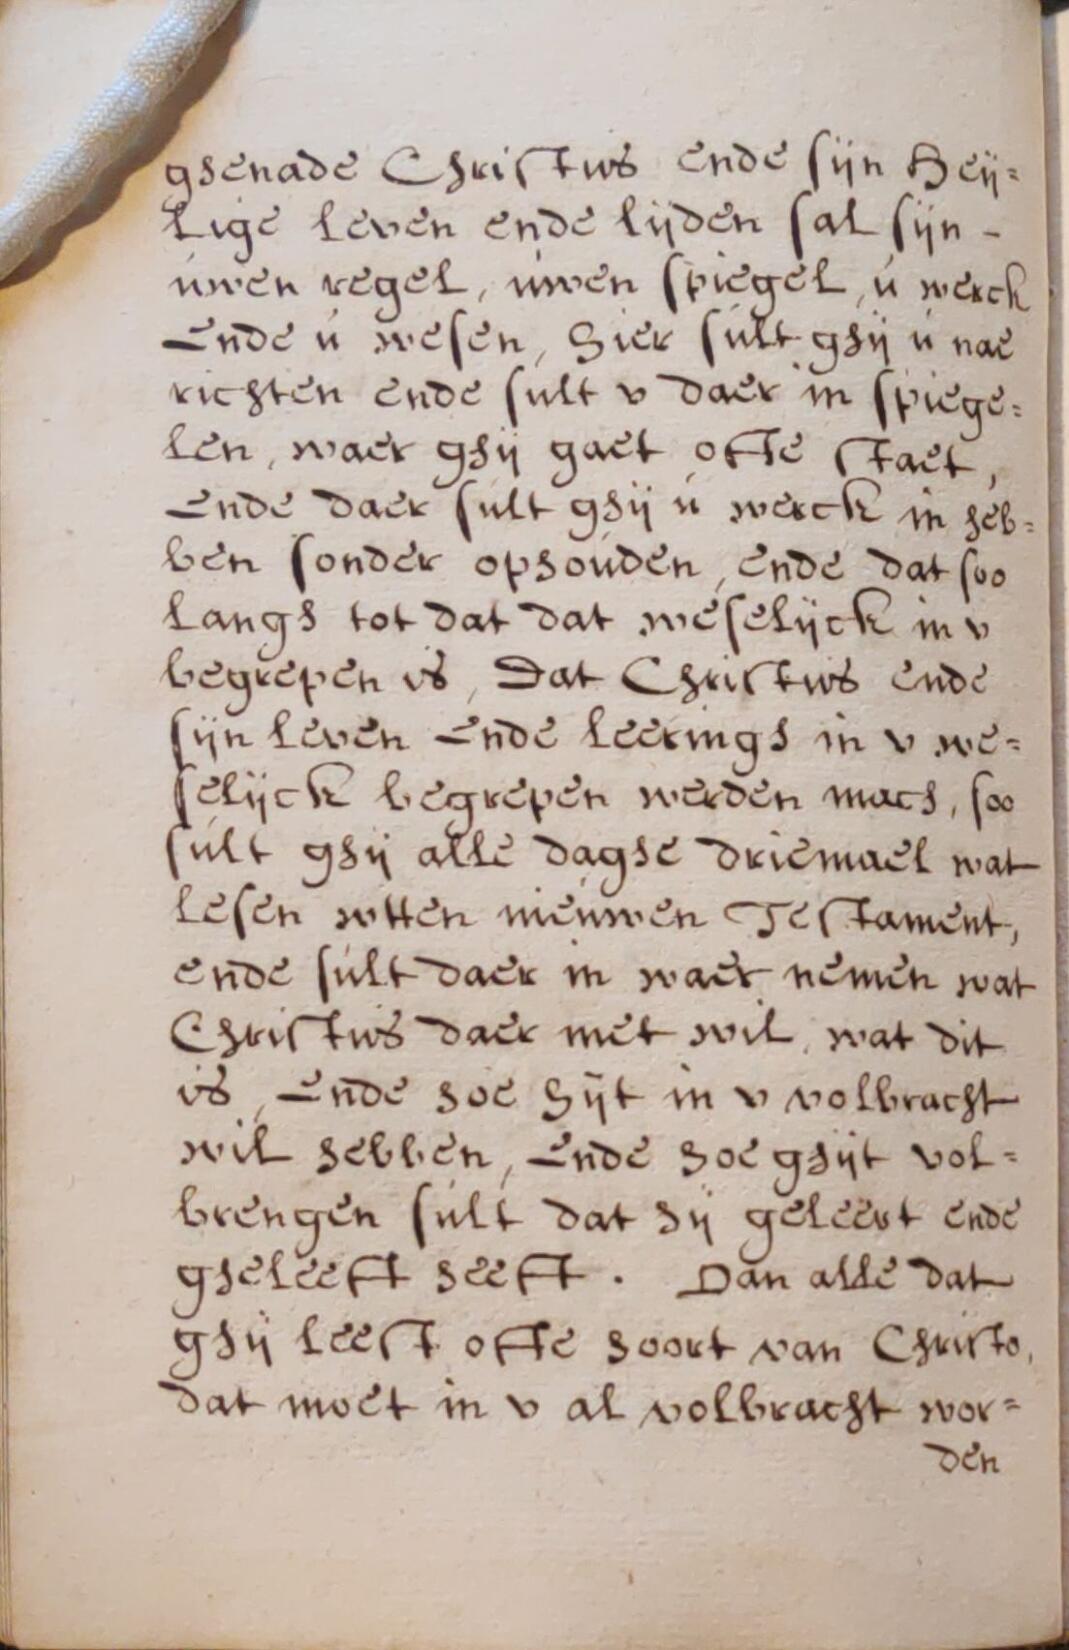 ghenade Christus ende sijn Heij=
lige leven ende lijden sal sijn -
uwen regel, uwen spiegel, u werck
Ende u wesen, hier sult ghij u nae
richten ende sult v daer in spiege=
len, waer ghij gaet ofte staet,
Ende daer sult ghij u werck in heb=
ben sonder ophouden, ende dat soo
langh tot dat dat weselijck in v
begrepen is, Dat Christus ende
sijn leven Ende leeringh in v we=
selijck begrepen werden mach, soo
sult ghij alle daghe driemael wat
lesen wtten nieuwen Testament,
ende sult daer in waer nemen wat
Christus daer met wil, wat dit
is, Ende hoe hijt in v volbracht
wil hebben, Ende hoe ghijt vol=
brengen sult dat hij geleert ende
gheleeft heeft. Dan alle dat
ghij leest ofte hoort van Christo,
dat moet in v al volbracht wor=
den